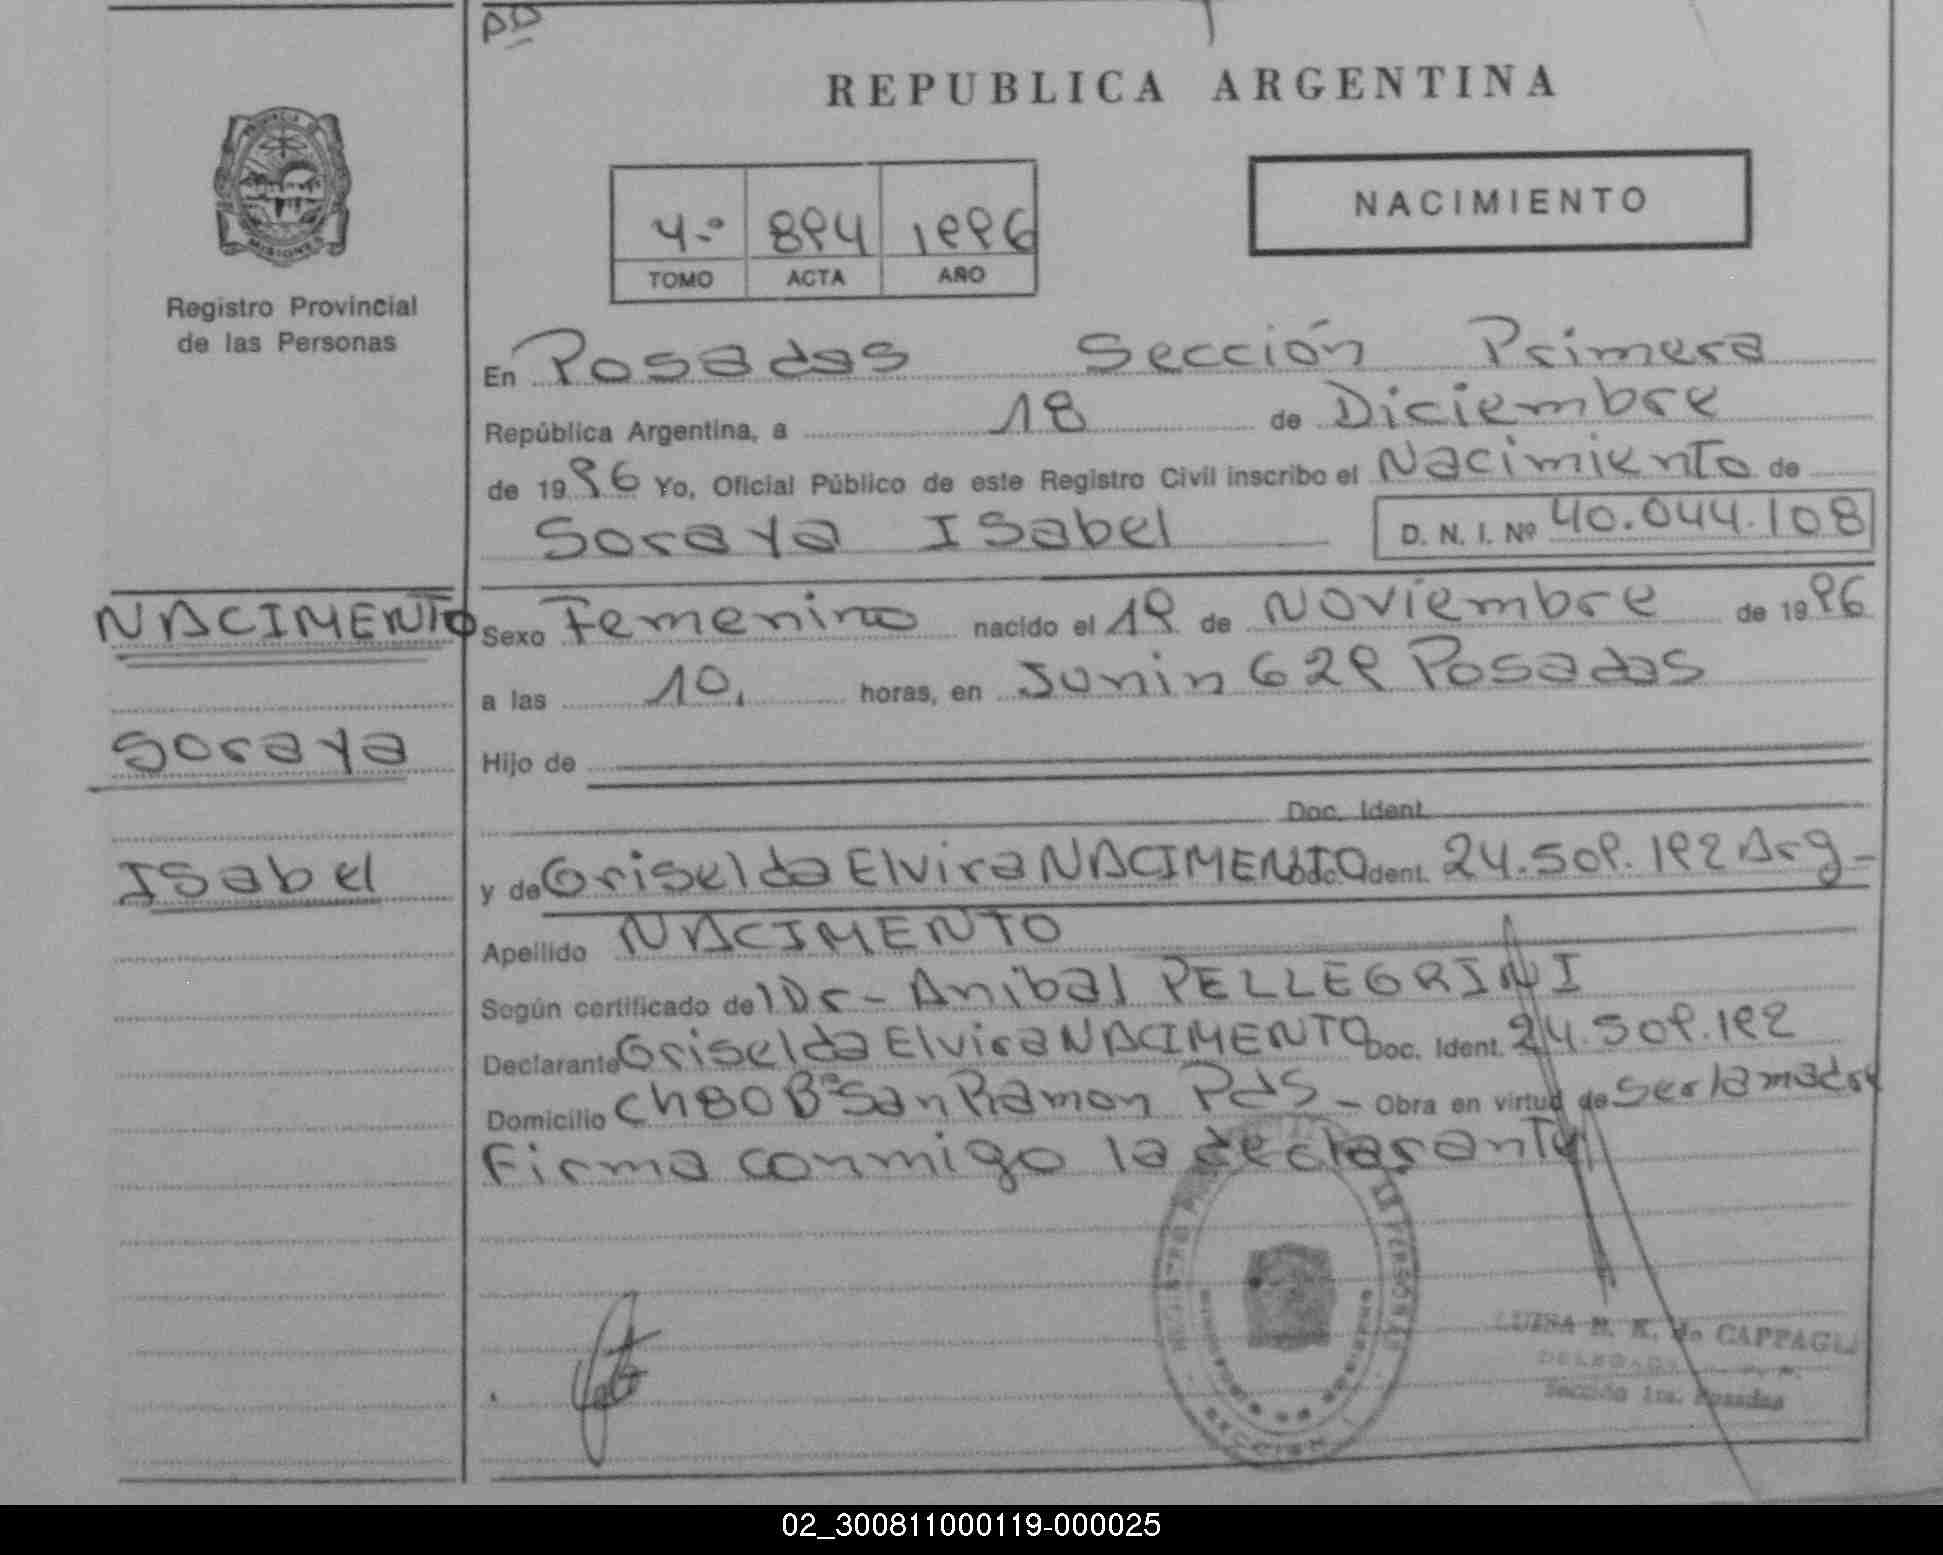 REPUBLICA ARGENTINA
NACIMIENTO
4.º 894 1996
TOMO ACTA AÑO
PROVINCIA DE
MISIONES
Registro Provincial
de las Personas
En Posadas Sección Primera
República Argentina, a 18 de Diciembre
de 1996 Yo, Oficial Público de este Registro Civil inscribo el Nacimiento de
Soraya Isabel D. N. I. Nº 40.044.108
NACIMENTO
Soraya
Isabel
Sexo Femenino nacido el 19 de Noviembre de 1996
a las 10. horas, en Junin 629 Posadas
Hijo de
Doc. Ident.
y de Griselda Elvira NACIMENTO Doc. Ident. 24.509.192 Arg-
Apellido NACIMENTO
Según certificado del Dr- Anibal PELLEGRINI
Declarante Griselda Elvira NACIMENTO Doc. Ident. 24.509.192
Domicilio Ch 80 Bº San Ramon PdS - Obra en virtud de ser la madre
Firma conmigo la declarante
LUISA K. de
Sección 1ra. Posadas
02_300811000119-000025